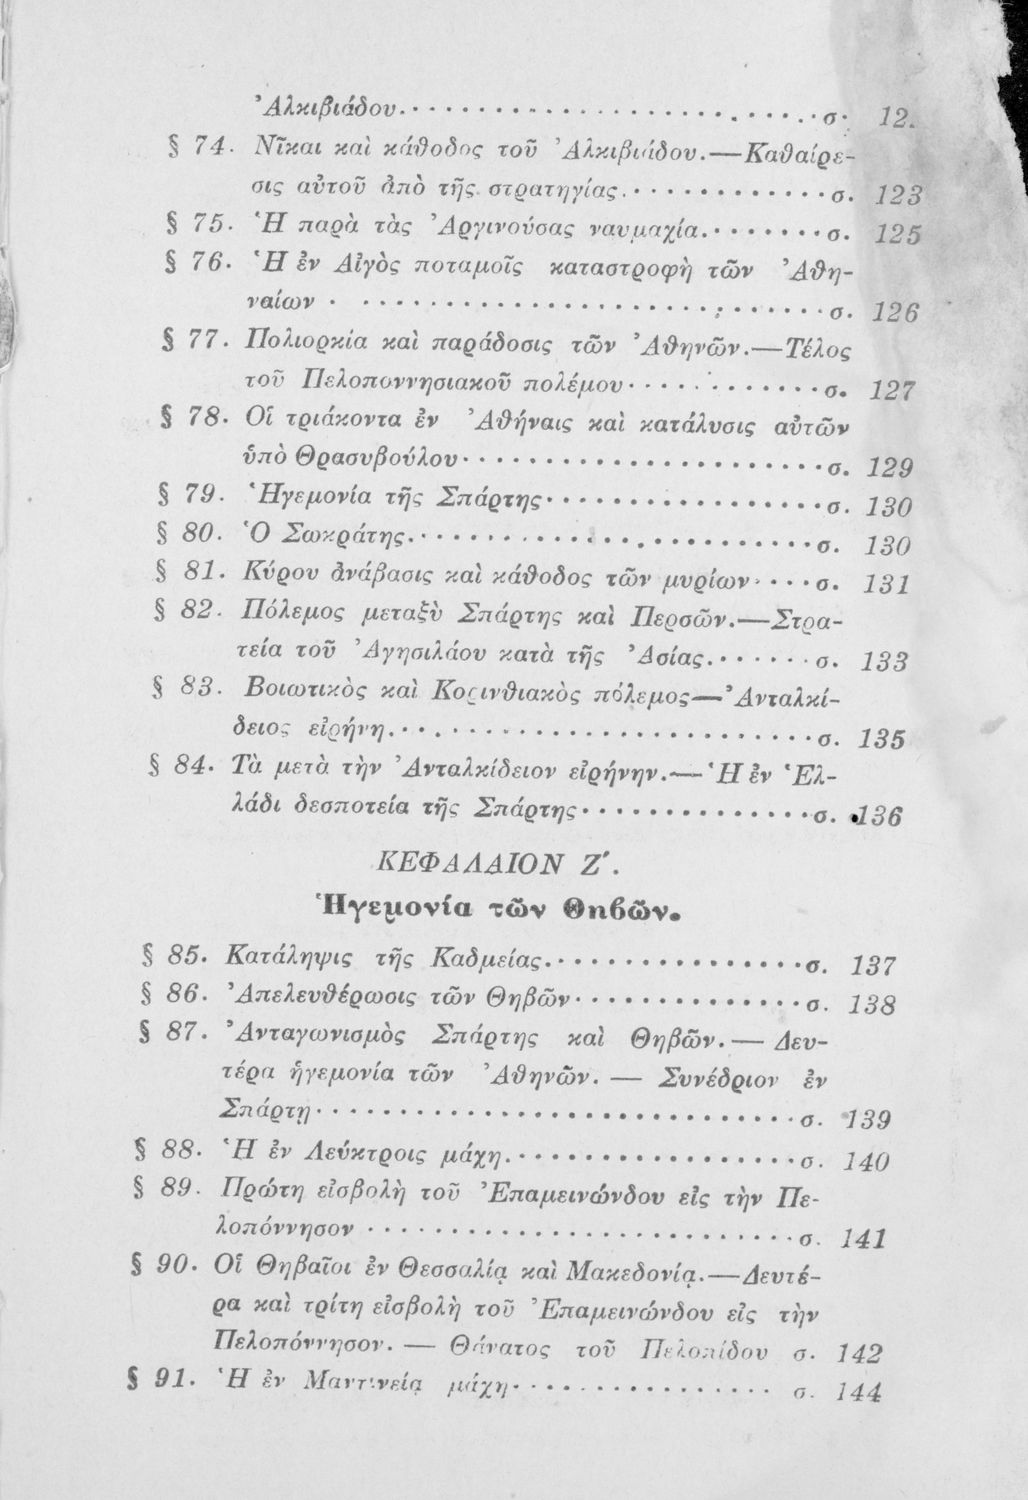 Ἀλκιβιάδου. . . . . . . . . . . . . . . . . . . . . . σ. 12.
§ 74. Νῖκαι καὶ κάθοδος τοῦ Ἀλκιβιάδου.—Καθαίρε-
σις αὐτοῦ ἀπὸ τῆς στρατηγίας. . . . . . . . . . . . σ. 123
§ 75. Ἡ παρὰ τὰς Ἀργινούσας ναυμαχία. . . . . . . . σ. 125
§ 76. Ἡ ἐν Αἰγὸς ποταμοῖς καταστροφὴ τῶν Ἀθη-
ναίων . . . . . . . . . . . . . . . . . . . . . . . . σ. 126
§ 77. Πολιορκία καὶ παράδοσις τῶν Ἀθηνῶν.—Τέλος
τοῦ Πελοποννησιακοῦ πολέμου . . . . . . . . . . . . σ. 127
§ 78. Οἱ τριάκοντα ἐν Ἀθήναις καὶ κατάλυσις αὐτῶν
ὑπὸ Θρασυβούλου . . . . . . . . . . . . . . . . . . . σ. 129
§ 79. Ἡγεμονία τῆς Σπάρτης . . . . . . . . . . . . . . . σ. 130
§ 80. Ὁ Σωκράτης. . . . . . . . . . . . . . . . . . . . . . σ. 130
§ 81. Κύρου ἀνάβασις καὶ κάθοδος τῶν μυρίων . . . . σ. 131
§ 82. Πόλεμος μεταξὺ Σπάρτης καὶ Περσῶν.—Στρα-
τεία τοῦ Ἀγησιλάου κατὰ τῆς Ἀσίας. . . . . . . σ. 133
§ 83. Βοιωτικὸς καὶ Κορινθιακὸς πόλεμος—Ἀνταλκί-
δειος εἰρήνη. . . . . . . . . . . . . . . . . . . . . . σ. 135
§ 84. Τὰ μετὰ τὴν Ἀνταλκίδειον εἰρήνην.—Ἡ ἐν Ἑλ-
λάδι δεσποτεία τῆς Σπάρτης . . . . . . . . . . . . . σ. 136
ΚΕΦΑΛΑΙΟΝ Ζ΄.
Ἡγεμονία τῶν Θηβῶν.
§ 85. Κατάληψις τῆς Καδμείας. . . . . . . . . . . . . . . σ. 137
§ 86. Ἀπελευθέρωσις τῶν Θηβῶν . . . . . . . . . . . . . σ. 138
§ 87. Ἀνταγωνισμὸς Σπάρτης καὶ Θηβῶν.— Δευ-
τέρα ἡγεμονία τῶν Ἀθηνῶν. — Συνέδριον ἐν
Σπάρτῃ . . . . . . . . . . . . . . . . . . . . . . . . . σ. 139
§ 88. Ἡ ἐν Λεύκτροις μάχη. . . . . . . . . . . . . . . . . σ. 140
§ 89. Πρώτη εἰσβολὴ τοῦ Ἐπαμεινώνδου εἰς τὴν Πε-
λοπόννησον . . . . . . . . . . . . . . . . . . . . . . . σ. 141
§ 90. Οἱ Θηβαῖοι ἐν Θεσσαλίᾳ καὶ Μακεδονίᾳ.—Δευτέ-
ρα καὶ τρίτη εἰσβολὴ τοῦ Ἐπαμεινώνδου εἰς τὴν
Πελοπόννησον. — Θάνατος τοῦ Πελοπίδου σ. 142
§ 91. Ἡ ἐν Μαντινείᾳ μάχη . . . . . . . . . . . . . . σ. 144